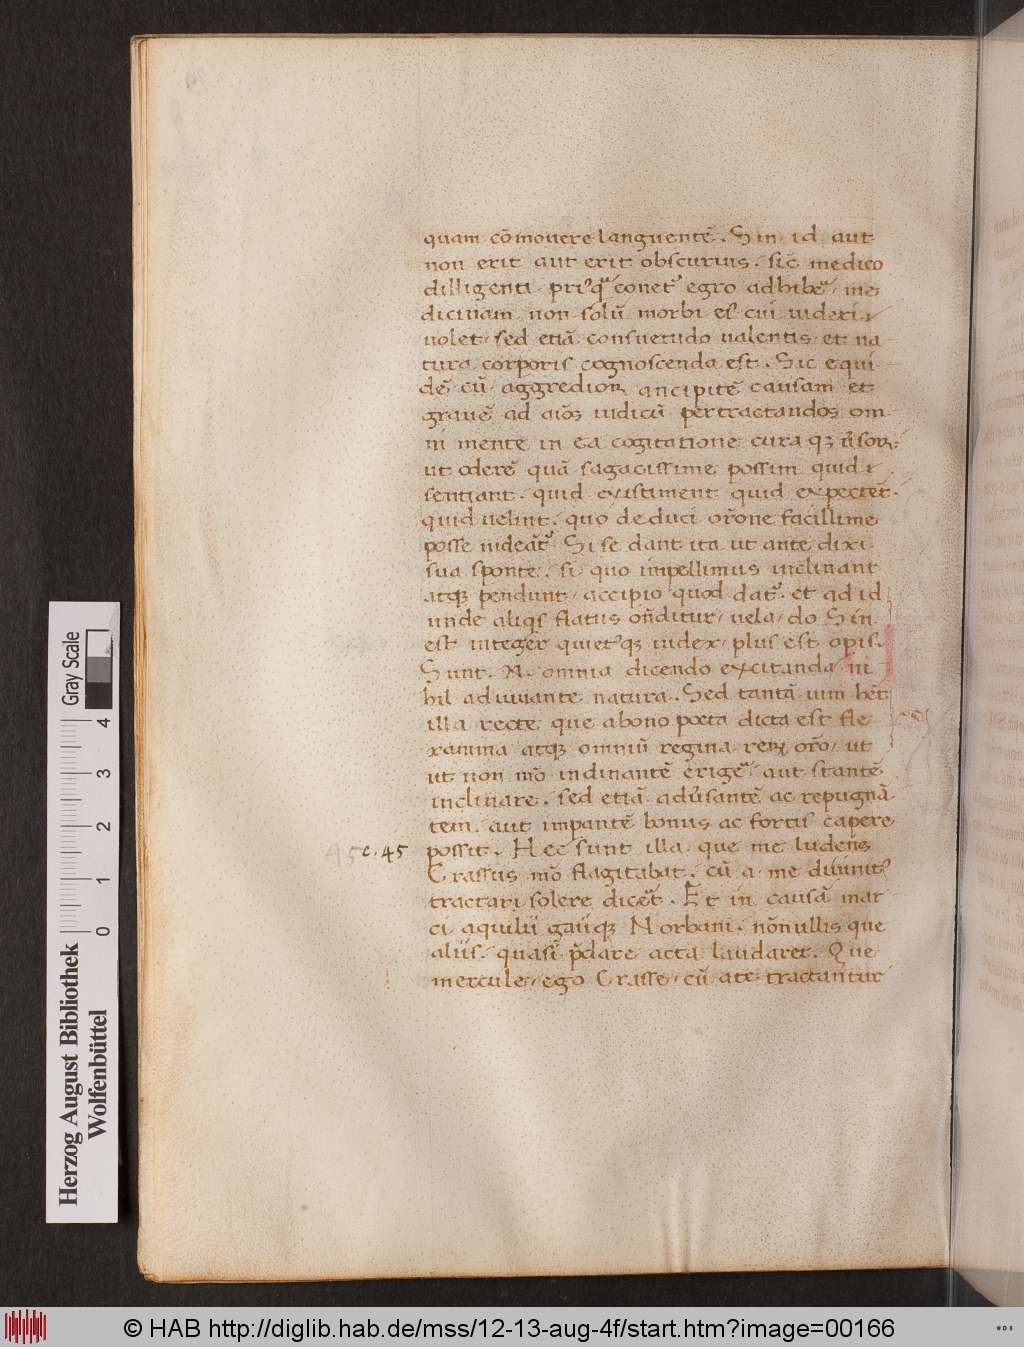 quam cōmouere languentē. Sin id aut
non erit aut erit obscurius. sic̄ medico
dilligenti priꝰq̄ conet᷑ egro adhibe᷑ me
dicinam non solū morbi eiꝰ cui mederi
uolet sed etiā consuetudo ualentis et na
tura corporis cognoscenda est. Sic equi
dē cū aggredior ancipitē causam et
grauē ad aīoꝝ iudicū pertractandos om
ni mente in ea cogitatione cura qꝫ ūsor
ut oderē quā sagacissime possim quid
sentiant. quid existiment quid expectēt.
quid uelint. quo deduci orōne facillime
posse uideāt᷑ Si se dant ita ut ante dixi
sua sponte. si quo impellimus inclinant
atqꝫ pendunt accipio quod dat᷑. et ad id
unde aliqs flatus ōnditur uela do Sin
est integer quietꝰqꝫ iudex plus est opis.
Sunt .N. omnia dicendo excitanda ni
hil adiuuante natura. Sed tantā uim hēt
illa recte que a bono poeta dicta est fle
xanima atqꝫ omniū regina reꝝ orō ut
ut non mō indinantē erige᷑ aut stantē
inclinare. sed etiā adūsantē ac repugnā
tem. aut impantē bonus ac fortis capere
possit. Hec sunt illa que me ludens
Crassus mō flagitabat. cū a me diuinitꝰ
tractari solere dice᷑t. Et in causā mar
ci aquilii gaiiqꝫ Norbani. nōnullis que
aliis. quasi p̄clare acta laudaret. Que
mercule ego Crasse cū a te tractantur
45 c. 45
Gray Scale
0 1 2 3 4
Herzog August Bibliothek
Wolfenbüttel
© HAB http://diglib.hab.de/mss/12-13-aug-4f/start.htm?image=00166